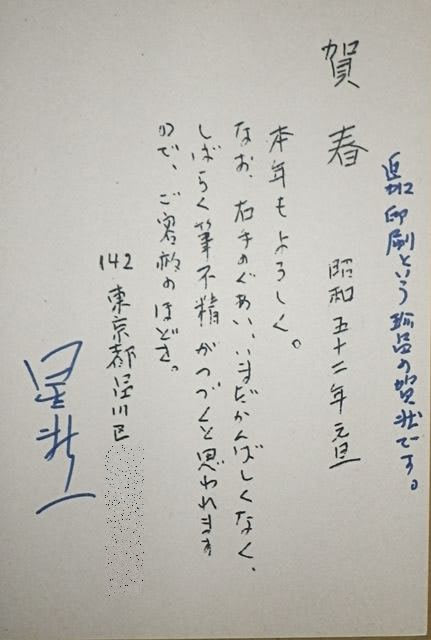 追加印刷という珍品の賀状です。
賀春
昭和五十二年元旦
本年もよろしく。
なお、右手のぐあい、いまだかんばしくなく、
しばらく筆不精がつづくと思われます
ので、ご容赦のほどを。
142 東京都品川区
星新一